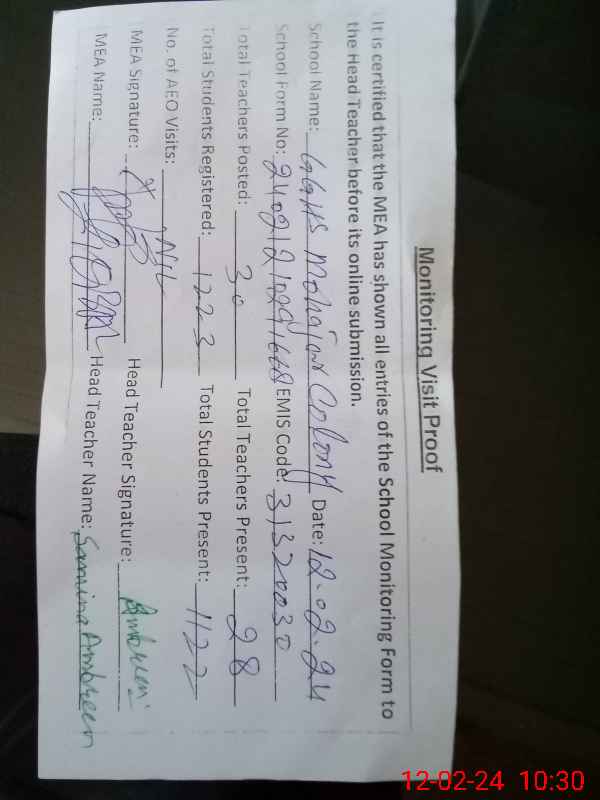 Monitoring Visit Proof
It is certified that the MEA has shown all entries of the School Monitoring Form to
the Head Teacher before its online submission.
School Name: GGHS Mohajar Colony Date: 12.02.24
School Form No: EMIS Code: 31320030
Total Teachers Posted: 30 Total Teachers Present: 28
Total Students Registered: 1223 Total Students Present: 1122
No. of AEO Visits: Nil
MEA Signature: Head Teacher Signature: Ambreen
MEA Name: Head Teacher Name: Samina Ambreen
12-02-24 10:30